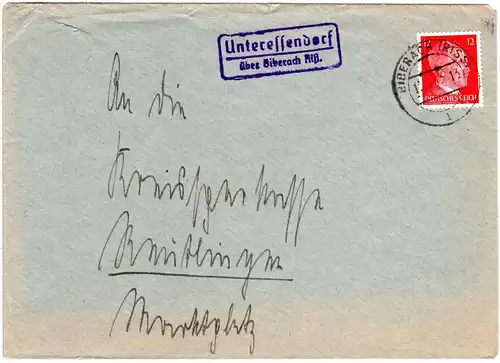 Unteressendorf
über Biberach Riß.
BIBERACH (RISS)
12
DEUTSCHES REICH
An die
Kreissparkasse
Reutlingen
Marktplatz